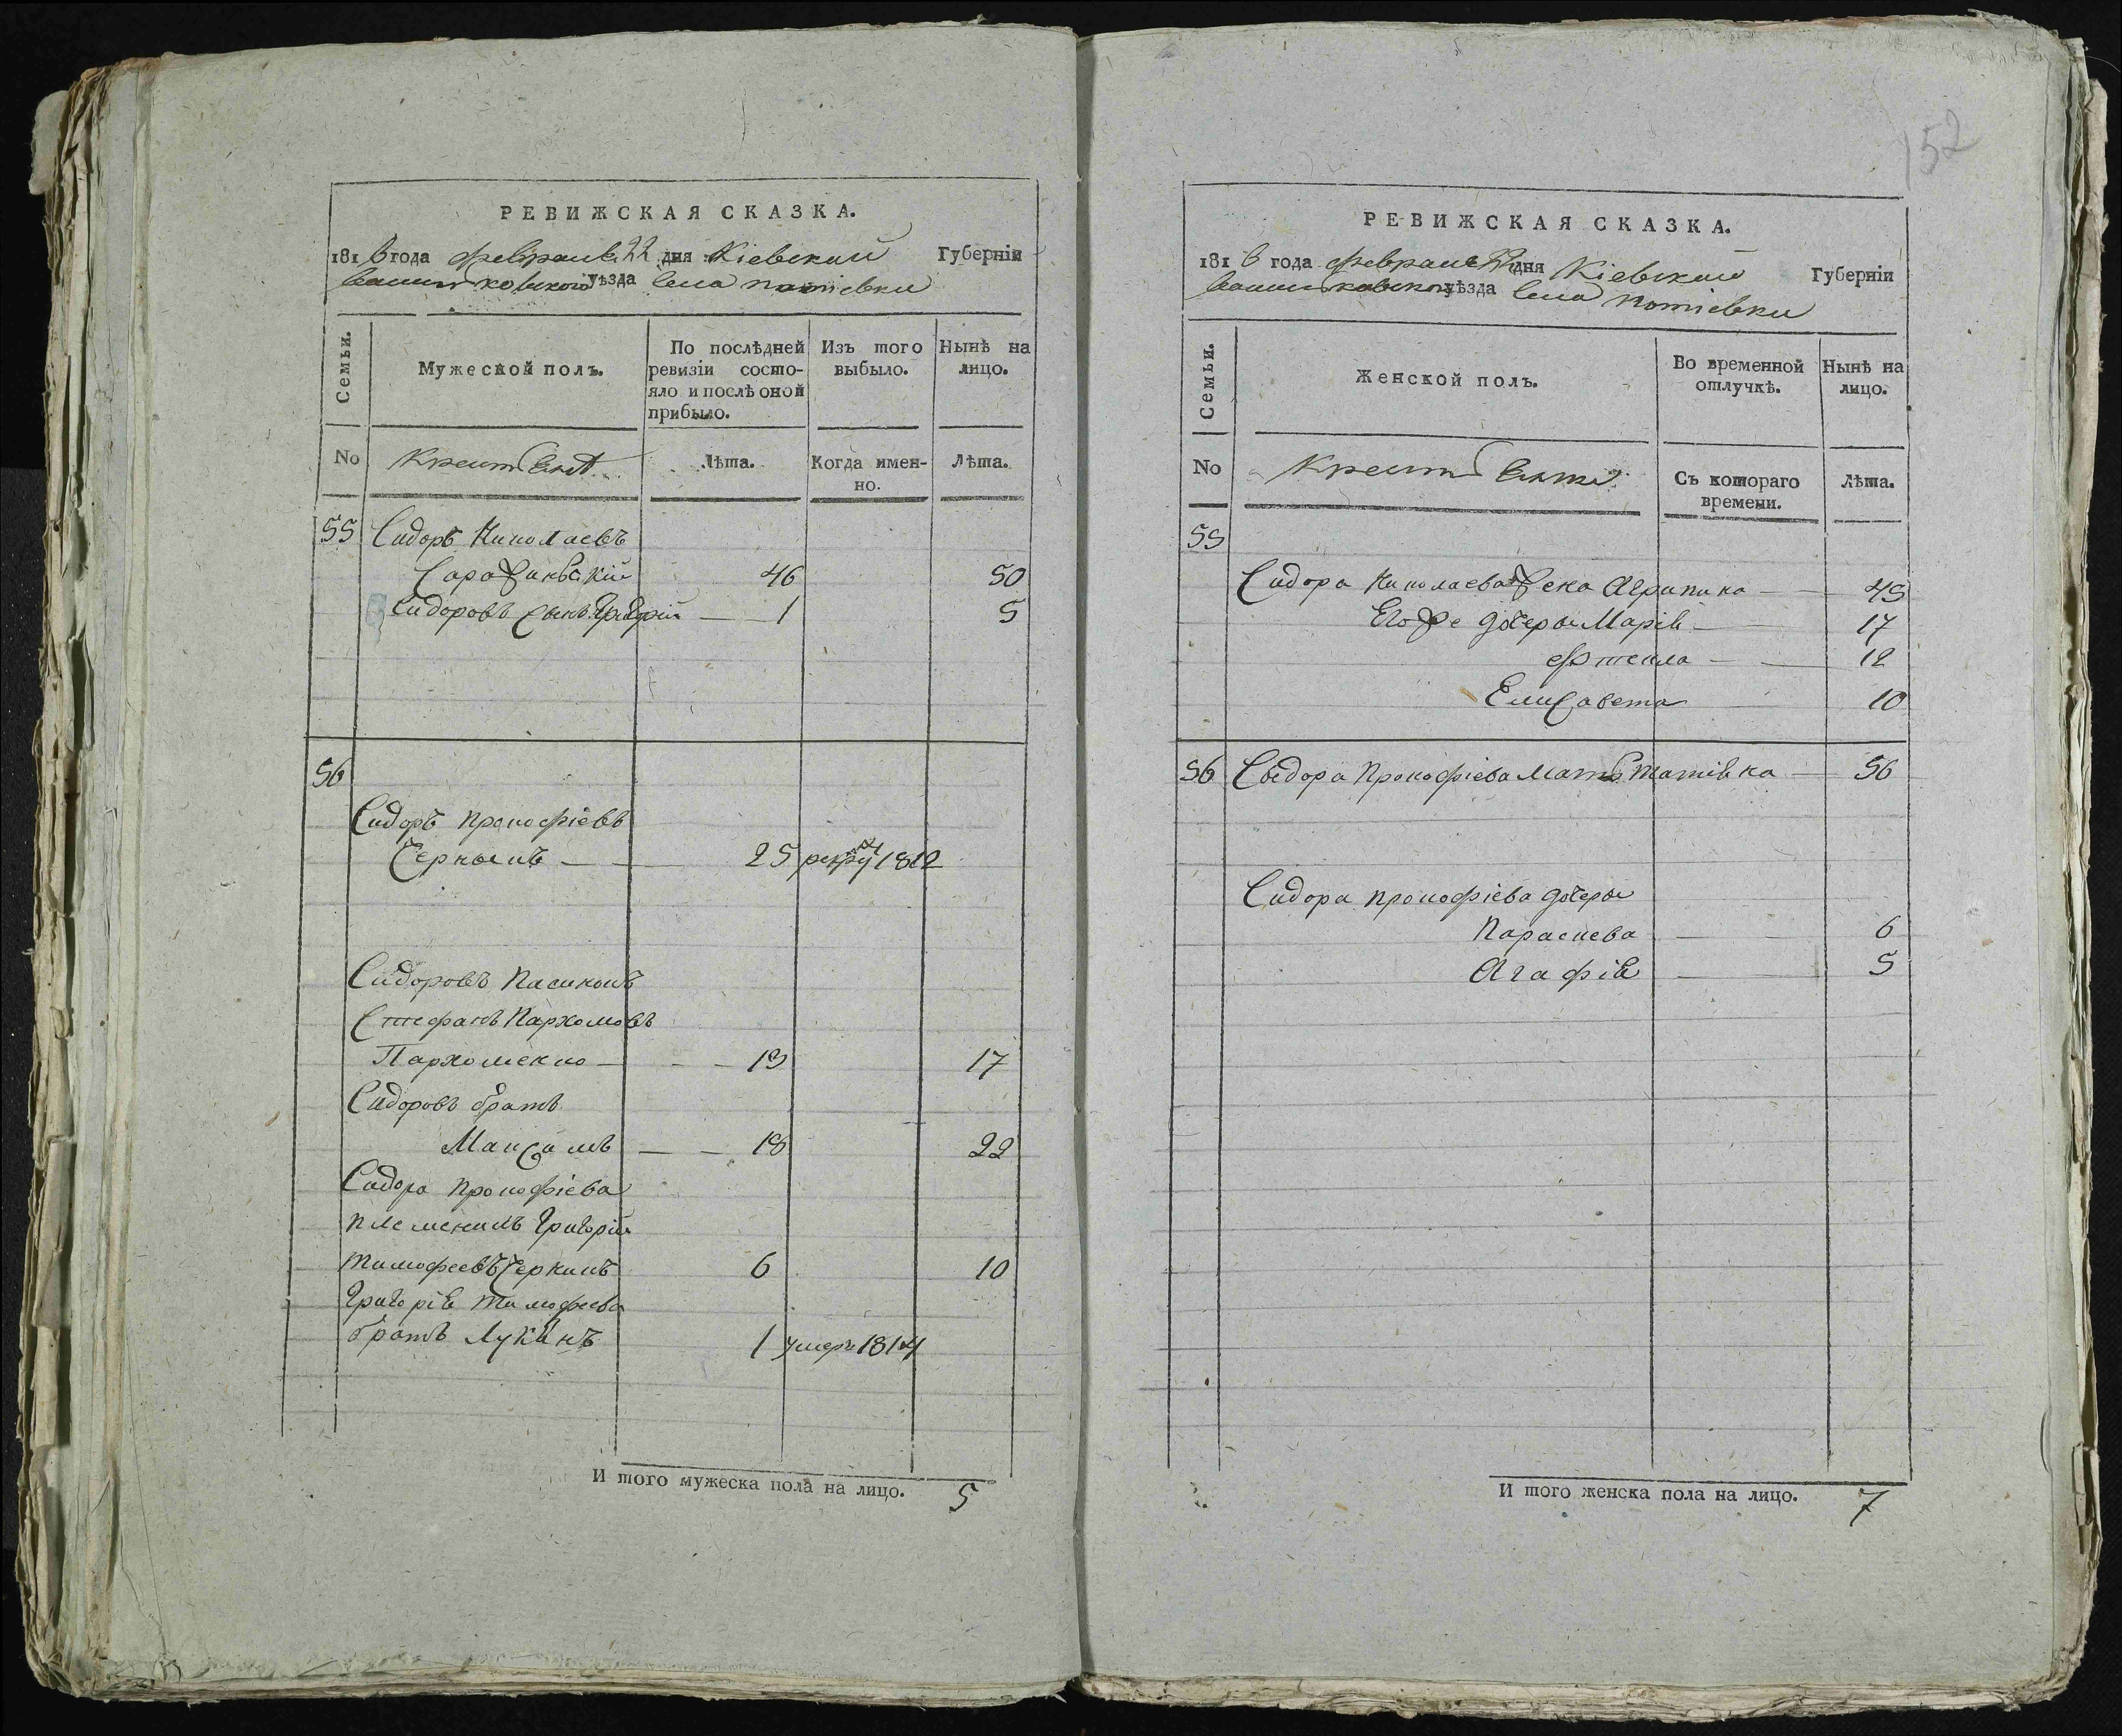 РЕВИЖСКАЯ СКАЗКА.
1816 года февраля 22 дня Кіевской Губерніи
Васильковского уѣзда Села Потіевки
Семьи.
Мужеской полъ.
По послѣдней ревизіи состо-
яло и послѣ оной
прибыло.
Изъ того
выбыло.
Нынѣ на
лицо.
No
Крестьянъ
Лѣта.
Когда имен-
но.
Лѣта.
55 Сидоръ Николаевъ
46 50
Сидоровъ Сынъ Григорій 1 5
56
Сидоръ Прокофіевъ
Чернышъ 25 рекру 1812
Сидоровъ Пасынокъ
Стефанъ Пархомовъ
Пархоменко 13 17
Сидоровъ братъ
Максимъ 18 22
Сидора Прокофіева
племеникъ Григорій
Тимофеевъ Чернышъ 6 10
Григорія Тимофеева
братъ Лукянъ 1 умеръ 1814
И того мужеска пола на лицо. 5
152
РЕВИЖСКАЯ СКАЗКА.
1816 года февраля 22 дня Кіевской Губерніи
Васильковского уѣзда Села Потіевки
Семьи.
Женской полъ.
Во временной
отлучкѣ.
Нынѣ на
лицо.
No
Крестьянъ
Съ котораго
времени.
Лѣта.
55
Сидора Николаева жена Агрипина 45
Его же дочеры Марія 17
Фтекла 12
Елисавета 10
56 Сыдора Прокофіева мать Татіяна 56
Сидора Прокофіева дочеры
Параскева 6
Агафія 5
И того женска пола на лицо. 7